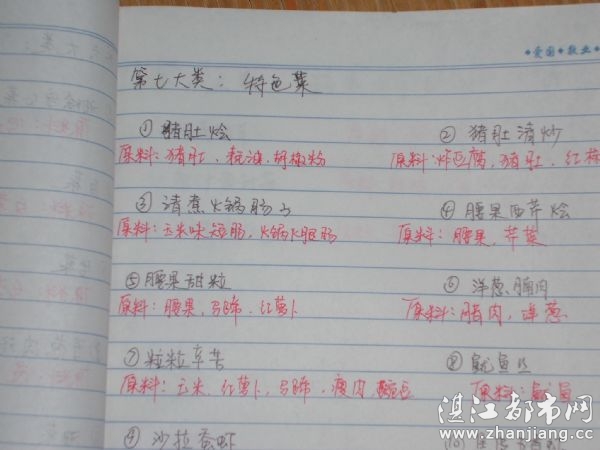 爱国 敬业
第七大类：特色菜
①猪肚烩 ②猪肚清炒
原料：猪肚、耗油、胡椒粉 原料：炸豆腐、猪肚、红
③清煮火锅肠 ④腰果西芹烩
原料：玉米味短肠、火锅火腿肠 原料：腰果、芹菜
⑤腰果甜粒 ⑥洋葱腩肉
原料：腰果、马蹄、红萝卜 原料：腩肉、洋葱
⑦粒粒辛苦 ⑧鱿鱼
原料：玉米、红萝卜、马蹄、瘦肉 原料：鱿鱼
⑨沙拉香虾 ⑩
湛江都市网
www.zhanjiang.cc